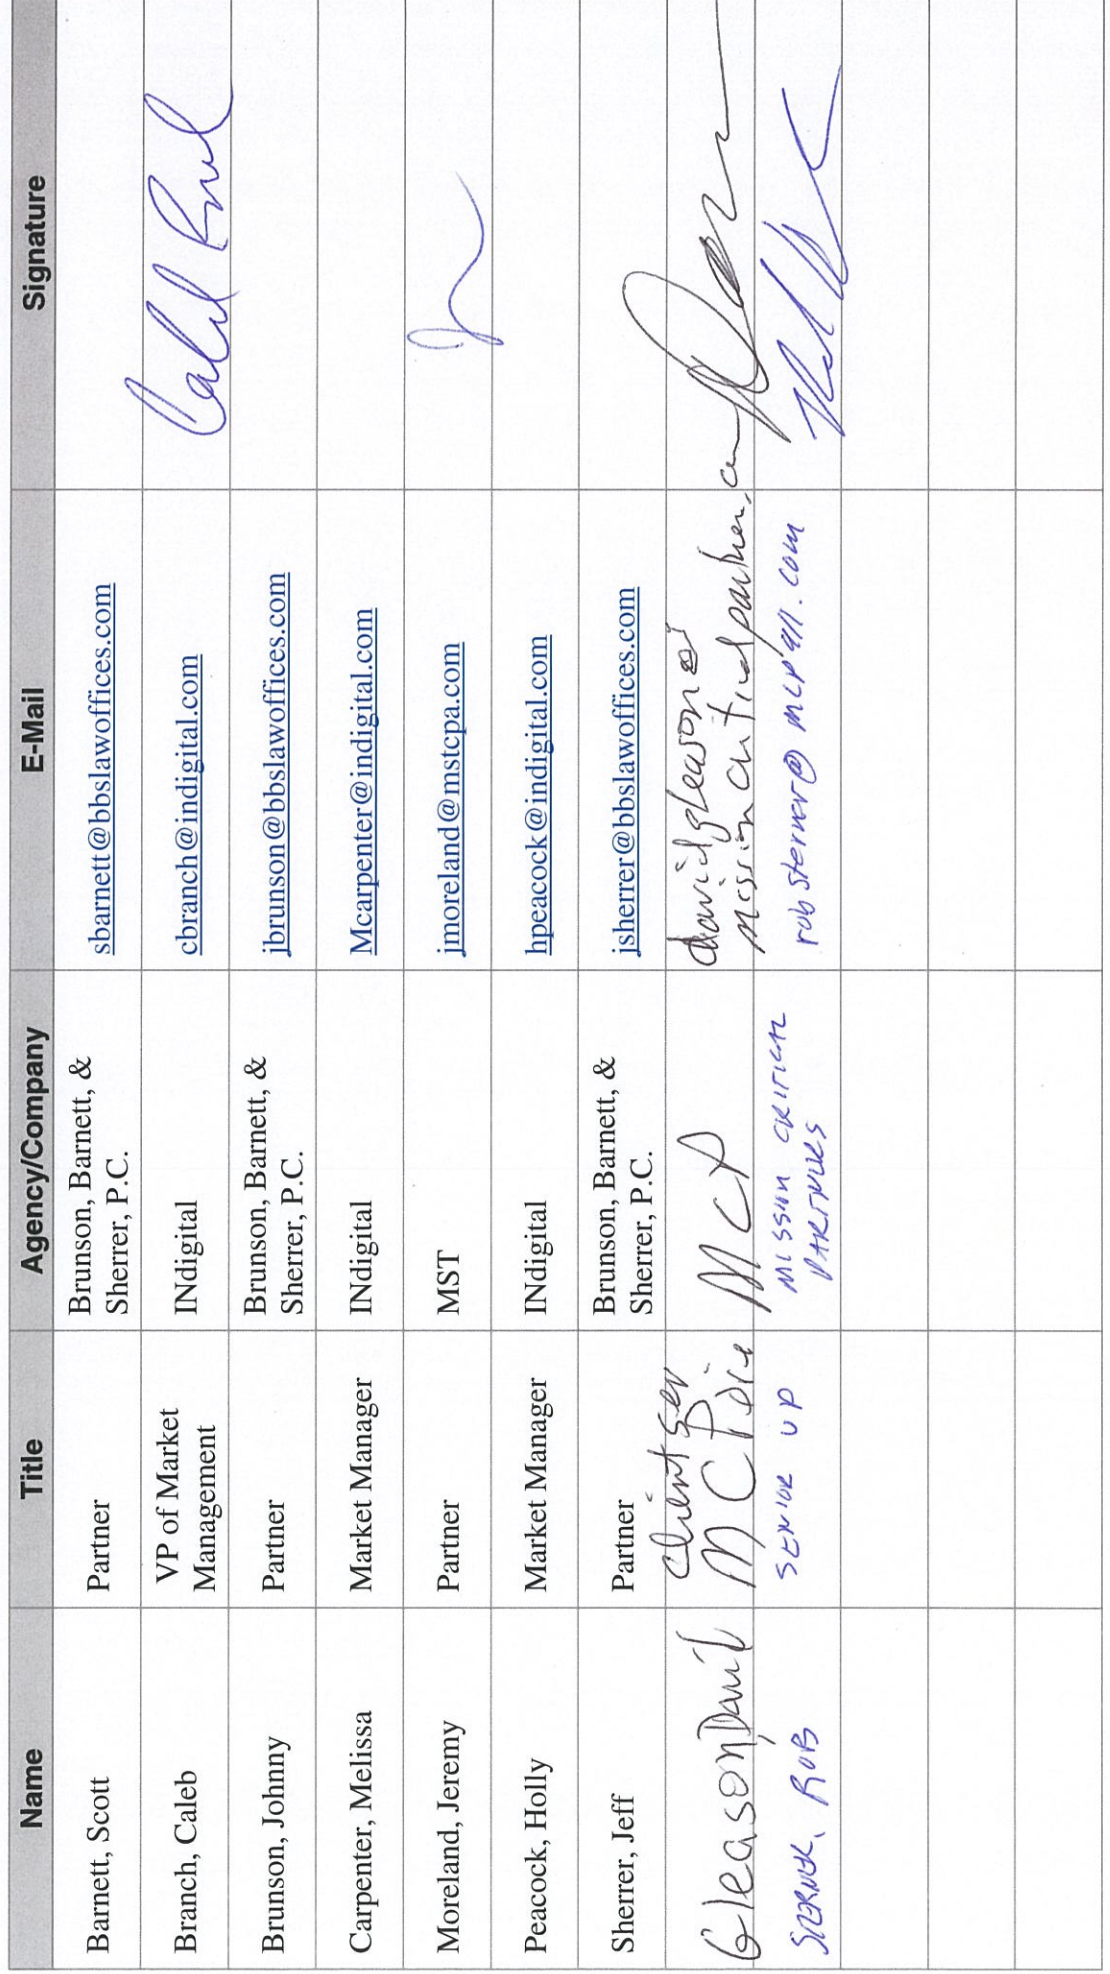 Name Title Agency/Company E-Mail Signature
Barnett, Scott Partner Brunson, Barnett, & sbarnett@bbslawoffices.com
Sherrer, P.C.
Branch, Caleb VP of Market INdigital cbranch@indigital.com Caleb
Management
Brunson, Johnny Partner Brunson, Barnett, & jbrunson@bbslawoffices.com
Sherrer, P.C.
Carpenter, Melissa Market Manager INdigital Mcarpenter@indigital.com
Moreland, Jeremy Partner MST jmoreland@mstcpa.com
Peacock, Holly Market Manager INdigital hpeacock@indigital.com
Sherrer, Jeff Partner Brunson, Barnett, & jsherrer@bbslawoffices.com
Sherrer, P.C.
Gleason, David Client Ser MCP davidgleason@
MCP missioncriticalpartners.com
STERNER, ROB SENIOR VP MISSION CRITICAL robsterner@mcp911.com
PARTNERS